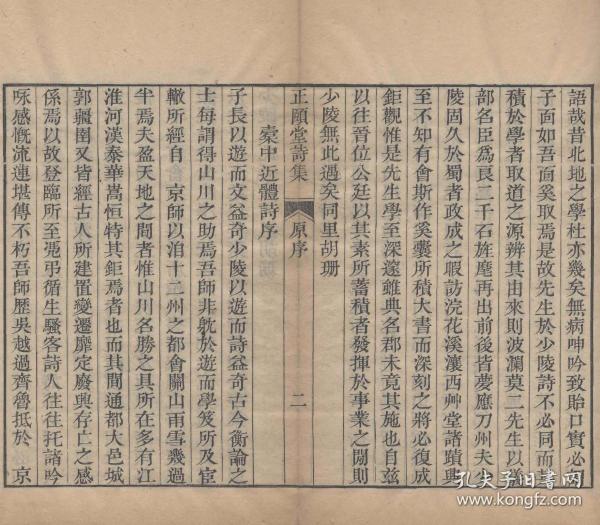 語哉昔北地之學杜亦幾矣無病呻吟致貽口實必
子面如吾面奚取焉是故先生於少陵詩不必同而
積於學者取道之源辨其由來則波瀾莫二先生以
部名臣為良二千石旌麾再出前後皆蔓應刀州夫少
陵固久於蜀者政成之暇訪浣花溪瀼西艸堂諸蹟與
至不知有會斯作奚囊所積大書而深刻之將必復成
鉅觀惟是先生學至深邃雖典名郡未竟其施也自茲
以往晉位公廷以其素所蓄積者發揮於事業之閒則
少陵無此遇矣同里胡珊
正頤堂詩集
原序
二
槖中近體詩序
子長以遊而文益奇少陵以遊而詩益奇古今衡論之
士每謂得山川之助焉吾師非躭於遊而學笈所及宦
轍所經自 京師以洎十二州之都會關山雨雪幾過
半焉夫盈天地之間者惟山川名勝之具所在多有江
淮河漢泰華嵩恒特其鉅焉者也而其間通都大邑城
郭疆圉又皆經古人所建置變遷靡定廢興存亡之感
係焉以故登臨所至憑弔循生騷客詩人往往托諸吟
咏感慨流連堪傳不朽吾師歷吳越過齊魯抵於 京
孔夫子旧书网
www.kongfz.com